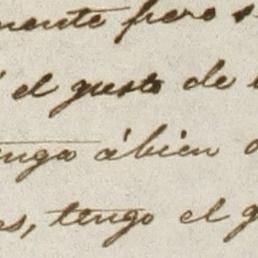 mente pero s
el gusto de
enga ábien
os, tengo el g